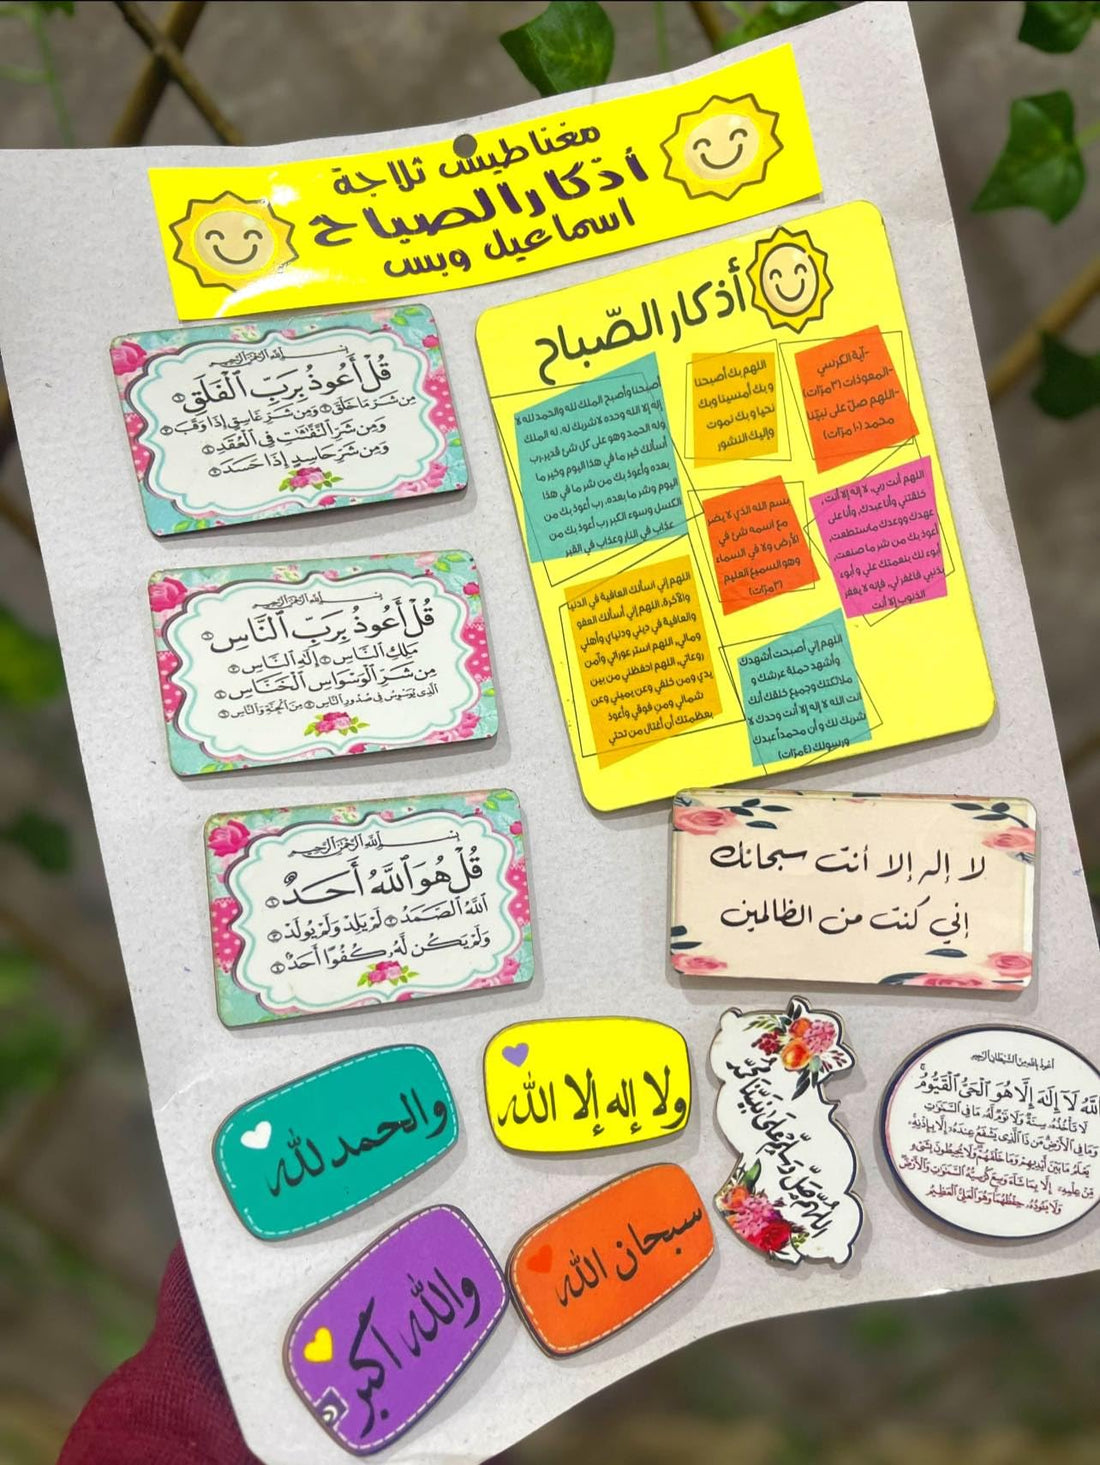 مغناطيس ثلاجة
أذكار الصباح
اسماعيل وبس
أذكار الصّباح
-آية الكرسي
-المعوذات (٣ مرّات)
-اللهم صلّ على نبيّنا
محمد (١٠ مرّات)
اللهم بك أصبحنا
و بك أمسينا وبك
نحيا و بك نموت
وإليك النشور
أصبحنا وأصبح الملك لله والحمد لله لا
إله إلا الله وحده لا شريك له، له الملك
وله الحمد وهو على كل شئ قدير، رب
أسألك خير ما في هذا اليوم وخير ما
بعده وأعوذ بك من شر ما في هذا
اليوم وشر ما بعده، رب أعوذ بك من
الكسل وسوء الكبر رب أعوذ بك من
عذاب في النار وعذاب في القبر
اللهم أنت ربي، لا إله إلا أنت،
خلقتني وأنا عبدك، وأنا على
عهدك ووعدك ما استطعت،
أعوذ بك من شر ما صنعت،
أبوء لك بنعمتك علي و أبوء
بذنبي فاغفر لي، فإنه لا يغفر
الذنوب إلا أنت
بسم الله الذي لا يضر
مع اسمه شئ في
الأرض ولا في السماء
وهو السميع العليم
(٣ مرّات)
اللهم إني اسألك العافية في الدنيا
والآخرة، اللهم إني أسألك العفو
والعافية في ديني ودنياي وأهلي
ومالي، اللهم استر عوراتي وآمن
روعاتي، اللهم احفظني من بين
يدي ومن خلفي وعن يميني وعن
شمالي ومن فوقي وأعوذ
بعظمتك أن أغتال من تحتي
اللهم إني أصبحت أشهدك
وأشهد حملة عرشك و
ملائكتك وجميع خلقك أنك
أنت الله لا إله إلا أنت وحدك لا
شريك لك و أن محمداً عبدك
ورسولك (٤ مرّات)
بِسْمِ ٱللَّهِ ٱلرَّحْمَٰنِ ٱلرَّحِيمِ
قُلْ أَعُوذُ بِرَبِّ ٱلْفَلَقِ ①
مِن شَرِّ مَا خَلَقَ ② وَمِن شَرِّ غَاسِقٍ إِذَا وَقَبَ ③
وَمِن شَرِّ ٱلنَّفَّٰثَٰتِ فِى ٱلْعُقَدِ ④
وَمِن شَرِّ حَاسِدٍ إِذَا حَسَدَ ⑤
بِسْمِ ٱللَّهِ ٱلرَّحْمَٰنِ ٱلرَّحِيمِ
قُلْ أَعُوذُ بِرَبِّ ٱلنَّاسِ ①
مَلِكِ ٱلنَّاسِ ② إِلَٰهِ ٱلنَّاسِ ③
مِن شَرِّ ٱلْوَسْوَاسِ ٱلْخَنَّاسِ ④
ٱلَّذِى يُوَسْوِسُ فِى صُدُورِ ٱلنَّاسِ ⑤ مِنَ ٱلْجِنَّةِ وَٱلنَّاسِ ⑥
بِسْمِ ٱللَّهِ ٱلرَّحْمَٰنِ ٱلرَّحِيمِ
قُلْ هُوَ ٱللَّهُ أَحَدٌ ①
ٱللَّهُ ٱلصَّمَدُ ② لَمْ يَلِدْ وَلَمْ يُولَدْ ③
وَلَمْ يَكُن لَّهُۥ كُفُوًا أَحَدٌۢ ④
لا إله إلا أنت سبحانك
إني كنت من الظالمين
والحمد لله
ولا إله إلا الله
والله أكبر
سبحان الله
اللهُمَّ صَلِّ وَسَلِّمْ عَلَى نَبِيِّنَا مُحَمَّدٍ
أعوذ بالله من الشيطان الرجيم
ٱللَّهُ لَآ إِلَٰهَ إِلَّا هُوَ ٱلْحَىُّ ٱلْقَيُّومُ
لَا تَأْخُذُهُۥ سِنَةٌ وَلَا نَوْمٌ لَّهُۥ مَا فِى ٱلسَّمَٰوَٰتِ
وَمَا فِى ٱلْأَرْضِ مَن ذَا ٱلَّذِى يَشْفَعُ عِندَهُۥٓ إِلَّا بِإِذْنِهِۦ
يَعْلَمُ مَا بَيْنَ أَيْدِيهِمْ وَمَا خَلْفَهُمْ وَلَا يُحِيطُونَ بِشَىْءٍ
مِّنْ عِلْمِهِۦٓ إِلَّا بِمَا شَآءَ وَسِعَ كُرْسِيُّهُ ٱلسَّمَٰوَٰتِ وَٱلْأَرْضَ
وَلَا يَـُٔودُهُۥ حِفْظُهُمَا وَهُوَ ٱلْعَلِىُّ ٱلْعَظِيمُ